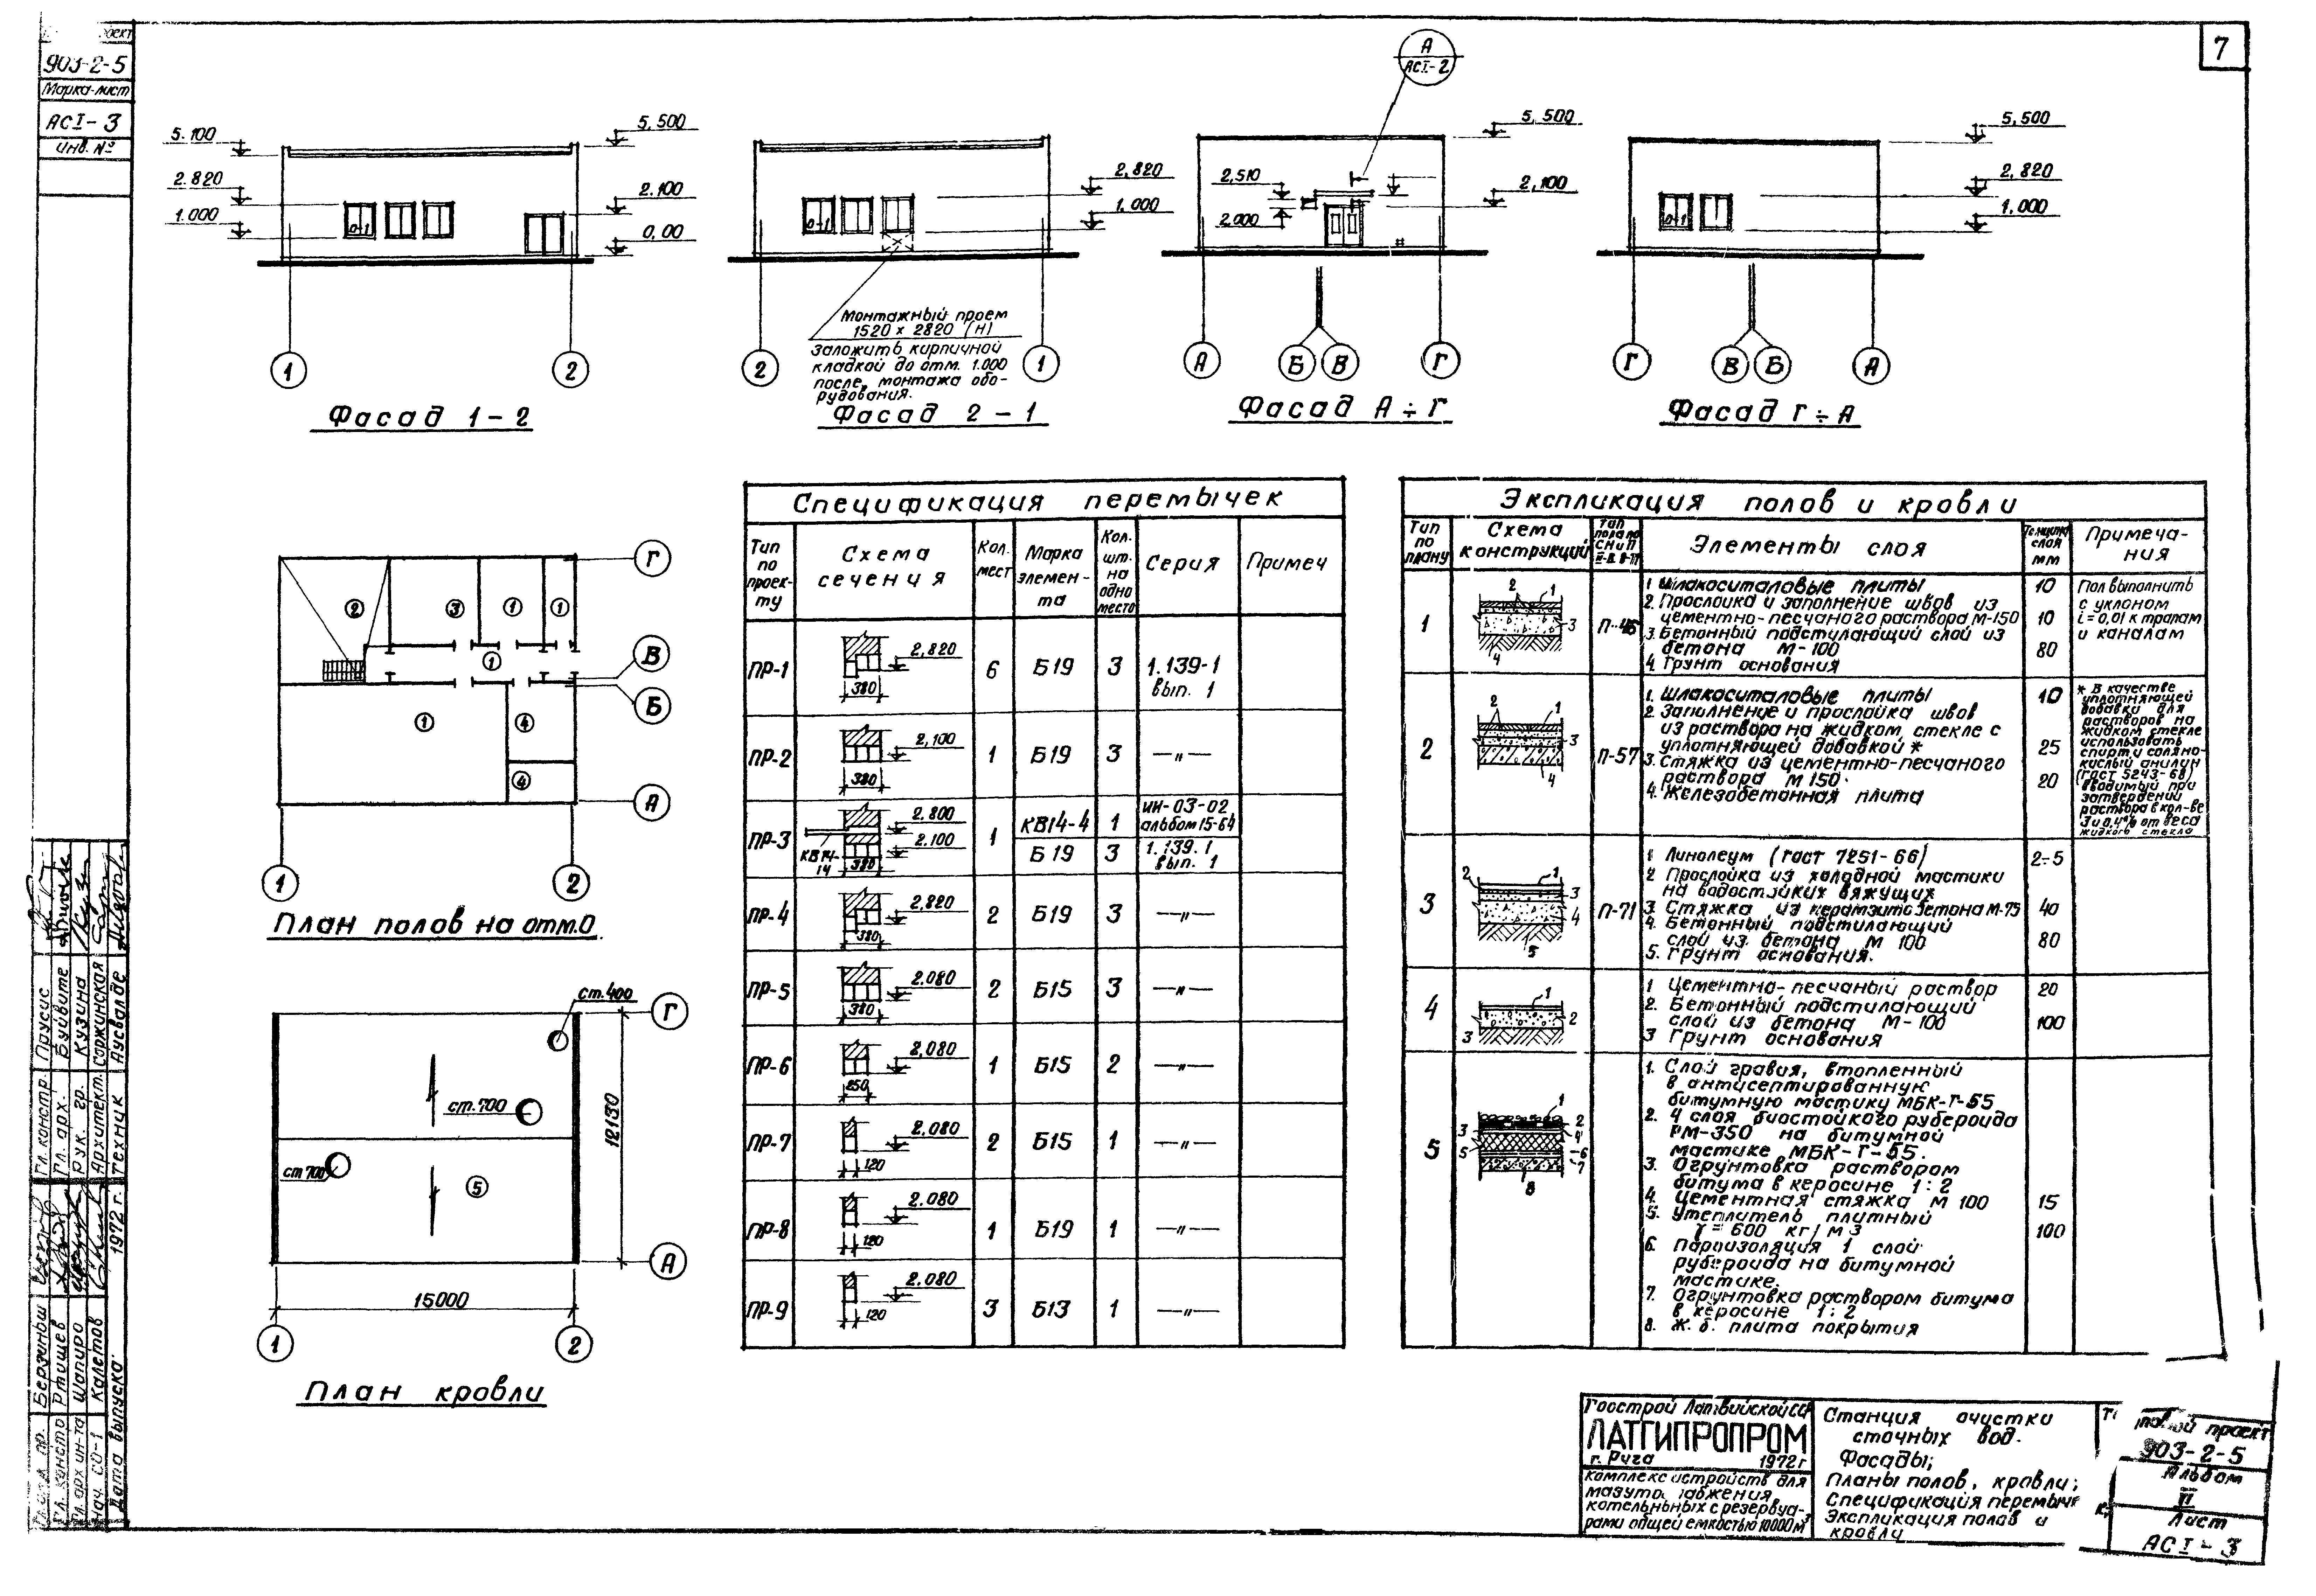 7
903-2-5
Марка-лист
АСI-3
инв. №
5.100
2.820
1.000
5,500
2.100
0,00
0-1
1
2
Фасад 1-2
2,820
1,000
0-1
Монтажный проем
1520 х 2820 (Н)
заложить кирпичной
кладкой до отм. 1.000
после, монтажа обо-
рудования.
2
1
Фасад 2-1
А
АСI-2
5,500
2,510
2.000
2,100
А
Б
В
Г
Фасад А÷Г
5,500
2,820
1,000
0-1
Г
В
Б
А
Фасад Г÷А
2
3
1
1
1
1
4
4
Г
В
Б
А
1
2
План полов на отм.0
ст.400
ст.700
ст 700
5
12130
15000
Г
А
1
2
План кровли
Спецификация перемычек
Тип по проек-ту
Схема сечения
Кол. мест
Марка элемен-та
Кол. шт. на одно место
Серия
Примеч
ПР-1 2,820 380 6 Б19 3 1.139-1 вып. 1
ПР-2 2,100 380 1 Б19 3 —"—
ПР-3 2.800 2.100 КВ14-14 380 1 КВ14-4 1 ИИ-03-02 альбом 15-64
Б19 3 1.139.1 вып. 1
ПР-4 2,820 380 2 Б19 3 —"—
ПР-5 2.080 380 2 Б15 3 —"—
ПР-6 2,080 250 1 Б15 2 —"—
ПР-7 2,080 120 2 Б15 1 —"—
ПР-8 2.080 120 1 Б19 1 —"—
ПР-9 2.080 120 3 Б13 1 —"—
Экспликация полов и кровли
Тип по плану
Схема конструкций
Тип пола по СНиП
Элементы слоя
Толщина слоя мм
Примеча-ния
1
П-46
1 Шлакоситаловые плиты 10
2. Прослойка и заполнение швов из
цементно-песчаного раствора М-150 10
3. Бетонный подстилающий слой из
бетона М-100 80
4. Грунт основания
Пол выполнить
с уклоном
i=0,01 к трапам
и каналам
2
П-57
1. Шлакоситаловые плиты 10
2. Заполнение и прослойка швов
из раствора на жидком стекле с
уплотняющей добавкой * 25
3. Стяжка из цементно-песчаного
раствора М 150. 20
4. Железобетонная плита
* В качестве
уплотняющей
добавки для
растворов на
жидком стекле
использовать
спирт и соляно-
кислый анилин
(ГОСТ 5243-68)
вводимый при
затвердении
раствора в кол-ве
3 и 0,4% от веса
жидкого стекла
3
П-71
1 Линолеум (ГОСТ 7251-66) 2÷5
2 Прослойка из холодной мастики
на водостойких вяжущих
3. Стяжка из керамзитобетона М-75 40
4. Бетонный подстилающий
слой из бетона М 100 80
5. Грунт основания.
4
1 Цементно-песчаный раствор 20
2. Бетонный подстилающий
слой из бетона М-100 100
3 Грунт основания
5
1. Слой гравия, втопленный
в антисептированную
битумную мастику МБК-Г-55
2. 4 слоя биостойкого рубероида
РМ-350 на битумной
мастике МБК-Г-55.
3. Огрунтовка раствором
битума в керосине 1:2
4. Цементная стяжка М 100 15
5. Утеплитель плитный
γ=600 кг/м3 100
6. Пароизоляция 1 слой
рубероида на битумной
мастике.
7. Огрунтовка раствором битума
в керосине 1:2
8. Ж.б. плита покрытия
Гл. констр. Прусис
Гл. арх. Буйвите
Рук. гр. Кузина
Архитект. Соржинская
Техник Аусвалде
Берзиньш
Гл. констр Ртищев
Гл. арх ин-та Шапиро
Нач. СО-1 Калетов
Дата выпуска. 1972 г.
Госстрой Латвийской ССР
ЛАТГИПРОПРОМ
г. Рига 1972 г
Комплекс устройств для
мазутоснабжения
котельных с резервуа-
рами общей емкостью 10000 м³
Станция очистки
сточных вод.
Фасады;
Планы полов, кровли;
Спецификация перемыч
Экспликация полов и
кровли
повой проект
903-2-5
Альбом
VI
Лист
АСI-3